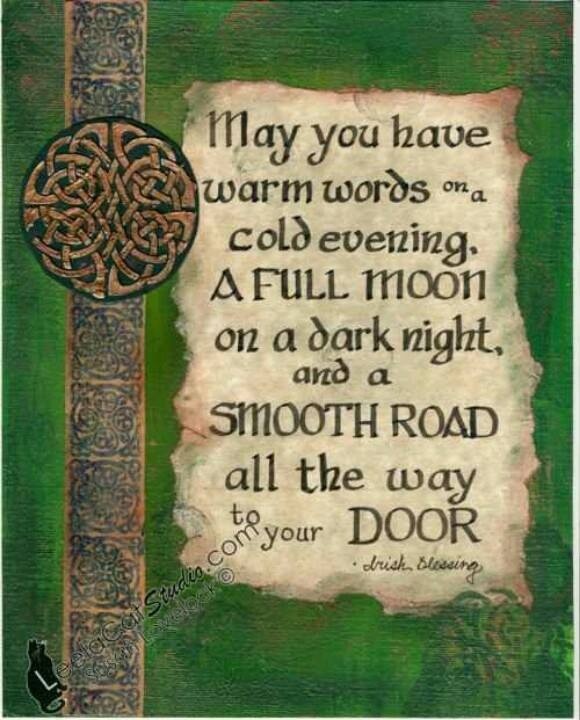 May you have
warm words on a
cold evening,
A FULL MOON
on a dark night,
and a
SMOOTH ROAD
all the way
to your DOOR
· Irish Blessing
LeelaCatStudio.com
Lovelock©